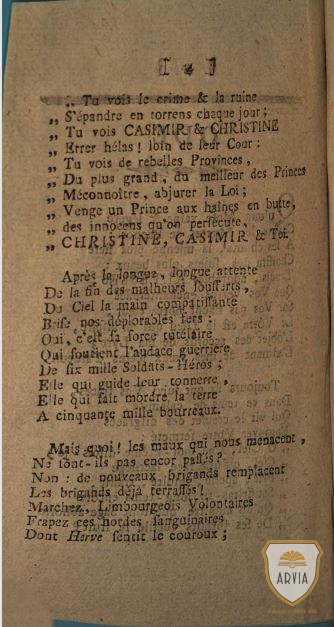 [ 2 ]
„ Tu vois le crime & la ruine
„ S'épandre en torrens chaque jour ;
„ Tu vois CASIMIR & CHRISTINE
„ Errer hélas ! loin de leur Cour :
„ Tu vois de rebelles Provinces,
„ Du plus grand, du meilleur des Princes
„ Méconnoître, abjurer la Loi ;
„ Venge un Prince aux haînes en butte,
„ des innocens qu'on persécute,
„ CHRISTINE, CASIMIR & Toi.
Après la longue, longue attente
De la fin des malheurs soufferts,
Du Ciel la main compatissante
Brise nos déplorables fers :
Oui, c'est sa force tutélaire
Qui soutient l'audace guerriere
De six mille Soldats-Héros ;
Elle qui guide leur tonnerre,
Elle qui fait mordre la terre
A cinquante mille bourreaux.
Mais quoi ! les maux qui nous menacent,
Ne sont-ils pas encor passés ?
Non : de nouveaux brigands remplacent
Les brigands déja terrassés !
Marchez, Limbourgeois Volontaires
Frapez ces hordes sanguinaires
Dont Herve sentit le couroux ;
ARVIA